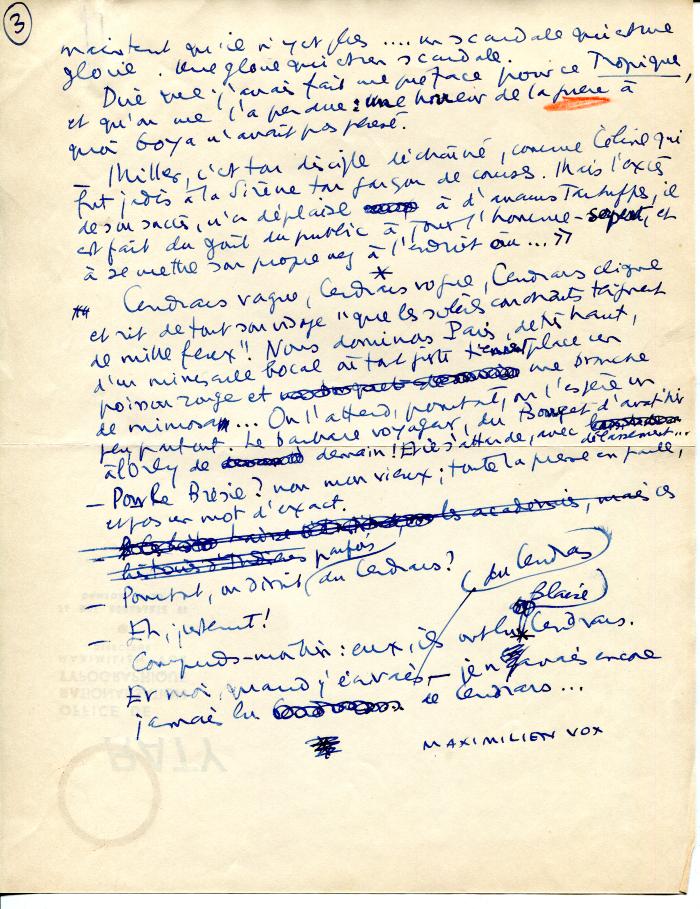 3
maintenant qu'il n'y est plus .... un scandale qui est une
gloire. Une gloire qui est un scandale.
Dire que j'avais fait une préface pour ce Tropique,
et qu'on me l'a perdue : une horreur de la guerre à
quoi Goya n'avait pas pensé.
— Miller, c'est ton disciple déchaîné, comme Céline qui
fut jadis à la Sirène ton garçon de courses. Mais l'excès
de son succès, n'en déplaise à d'anciens Tartuffes, il
est fait du goût du public à tout l'homme-serpent, et
à se mettre son propre nez à l'endroit où... »
*
Cendrars vague, Cendrars vogue, Cendrars cligne
et rit de tout son visage "que les soleils couchants teignent
de mille feux"! Nous dominons Paris, de très haut,
d'un minuscule bocal où tout juste tiennent place un
poisson rouge et une branche
de mimosa... On l'attend, pourtant, on l'espère un
peu partout. Le barbare voyageur, du Bourget d'avant-hier
à l'Orly de demain! Et il s'attarde, avec
délassement...
— Pour le Brésil? non mon vieux; toute la presse en parle,
et pas un mot d'exact.
les académies, mais ces
histoires d'Indiens parfois
— Pourtant, on dirait du Cendrars?
(du Cendrars
— Eh, justement!
Blaise
Comprends-moi bien : eux, ils ont lu Cendrars.
Et moi, quand j'écrivais, — je n'avais encore
jamais lu de Cendrars...
MAXIMILIEN VOX
OFFICE
RATIONAL
TYPOGRAPHIQUE
MAXIMILIEN